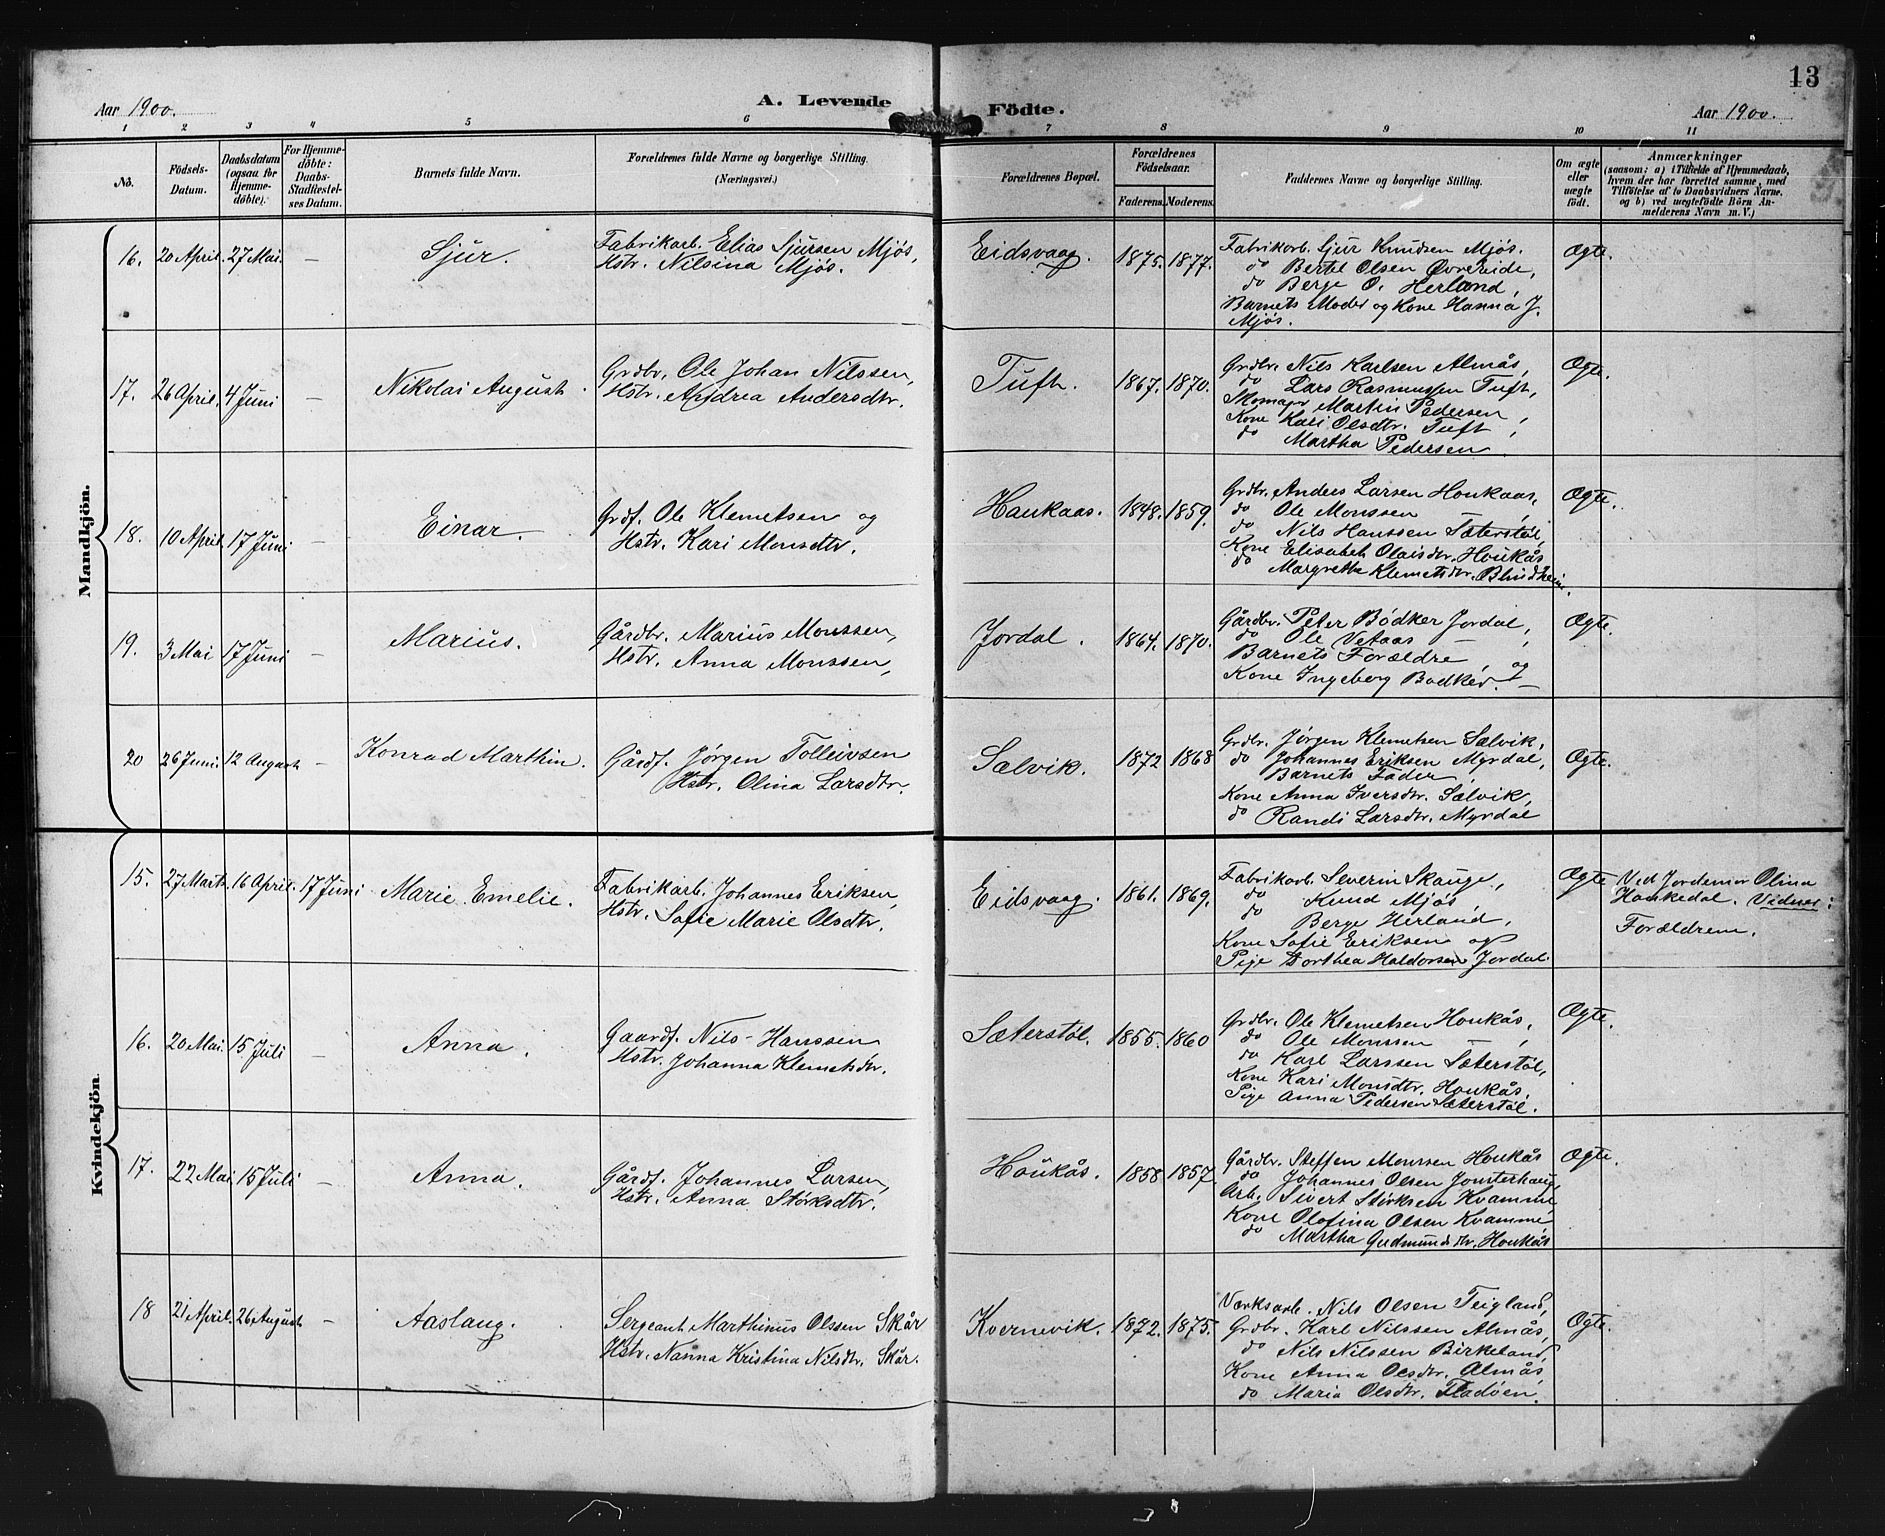 13
Aar 1900.
A. Levende Födte.
Aar 1900.
1 2 3 4 5 6 7 8 9 10 11
No.
Födsels-Datum.
Daabsdatum (ogsaa for Hjemmedøbte).
For Hjemmedøbte: Daabs-Stadfæstelses Datum.
Barnets fulde Navn.
Forældrenes fulde Navne og borgerlige Stilling.
(Næringsvei.)
Forældrenes Bopæl.
Forældrenes Födselsaar.
Faderens. Moderens.
Faddernes Navne og borgerlige Stilling.
Om ægte eller uægte födt.
Anmærkninger
(saasom: a) i Tilfælde af Hjemmedaab,
hvem der har forrettet samme, med
Tilföielse af to Daabsvidners Navne.
og b) ved uægtefödte Börn An-
melderens Navn m. V.)
Mandkjön.
16. 20 April. 27 Mai. — Sjur.
Fabrikarb. Elias Sjursen Mjøs,
Hstr. Nilsina Mjøs.
Eidsvaag. 1875. 1877.
Fabrikarb. Sjur Knudsen Mjøs.
do Bertel Olsen Øvreeide,
do Berge O. Herland,
Barnets Moder og Kone Hanna J.
Mjøs.
Ægte.
17. 26 April. 4 Juni — Nikolai August.
Grdbr. Ole Johan Nilssen,
Hstr. Andrea Andersdtr.
Tuft. 1867. 1870.
Grdbr. Nils Karlsen Almås,
do Lars Rasmussen Tuft,
Skomager Martin Pedersen,
Kone Kari Olsdtr. Tuft,
do Martha Pedersen
Ægte.
18. 10 April 17 Juni — Einar.
Grdf. Ole Klemetsen og
Hstr. Kari Monsdtr.
Haukaas. 1848. 1859.
Grdbr. Anders Larsen Houkaas,
do Ole Monssen —,
do Nils Hanssen Sæterstøl,
Kone Elisabeth Olaisdtr. Houkås
do Margrethe Klemetsdtr. Blindheim.
Ægte.
19. 3 Mai 17 Juni — Marius.
Gårdbr. Marius Monssen,
Hstr. Anna Monssen,
Jordal. 1864. 1870.
Gårdbr. Peter Bødker Jordal,
do Ole Vetaas —,
Barnets Forældre, og
Kone Ingeberg Bødker. —
Ægte.
20 26 Juni. 12 August — Konrad Marthin.
Gårdf. Jørgen Tolleivsen
Hstr. Olina Larsdtr.
Sælvik. 1872 1868
Grdbr. Jørgen Klemetsen Sælvik,
do Johannes Eriksen Myrdal,
Barnets Fader,
Kone Anna Iversdtr. Sælvik,
do Randi Larsdtr. Myrdal
Ægte.
Kvindekjön.
15. 27 Marts. 16 April. 17 Juni Marie Emelie.
Fabrikarb. Johannes Eriksen,
Hstr. Sofie Marie Olsdtr.
Eidsvaag. 1861. 1869.
Fabrikarb. Severin Skauge,
do Knud Mjøs,
do Berge Herland,
Kone Sofie Eriksen og
Pige Dorthea Haldorsen Jordal.
Ægte
Ved Jordemor Olina
Haukedal. Vidner:
Forældrene.
16. 20 Mai. 15 Juli — Anna.
Gaardf. Nils Hanssen
Hstr. Johanna Klemetsdtr.
Sæterstøl. 1855. 1860
Grdbr. Ole Klemetsen Houkås,
do Ole Monssen —,
do Karl Larssen Sæterstøl,
Kone Kari Monsdtr. Houkås,
Pige Anna Pedersen Sæterstøl.
Ægte.
17. 22 Mai 15 Juli — Anna.
Gårdf. Johannes Larsen,
Hstr. Anna Størksdtr.
Houkås. 1858 1857
Gårdbr. Steffen Monssen Houkås
do Johannes Olsen Jonsterhaug,
Arb. Sivert Størksen Kvamme
Kone Olofina Olsen Kvamme
do Martha Gudmundsdtr. Houkås
Ægte.
18 21 April. 26 August — Aaslaug.
Sergeant Marthinus Olssen Skår
Hstr. Nanna Kristina Nilsdtr. Skår.
Kvernevik. 1872. 1875.
Værksarb. Nils Olsen Teigland,
Grdbr. Karl Nilssen Almås,
do Nils Nilssen Birkeland,
Kone Anna Olsdtr. Almås,
do Maria Olsdtr. Fladøen.
Ægte.